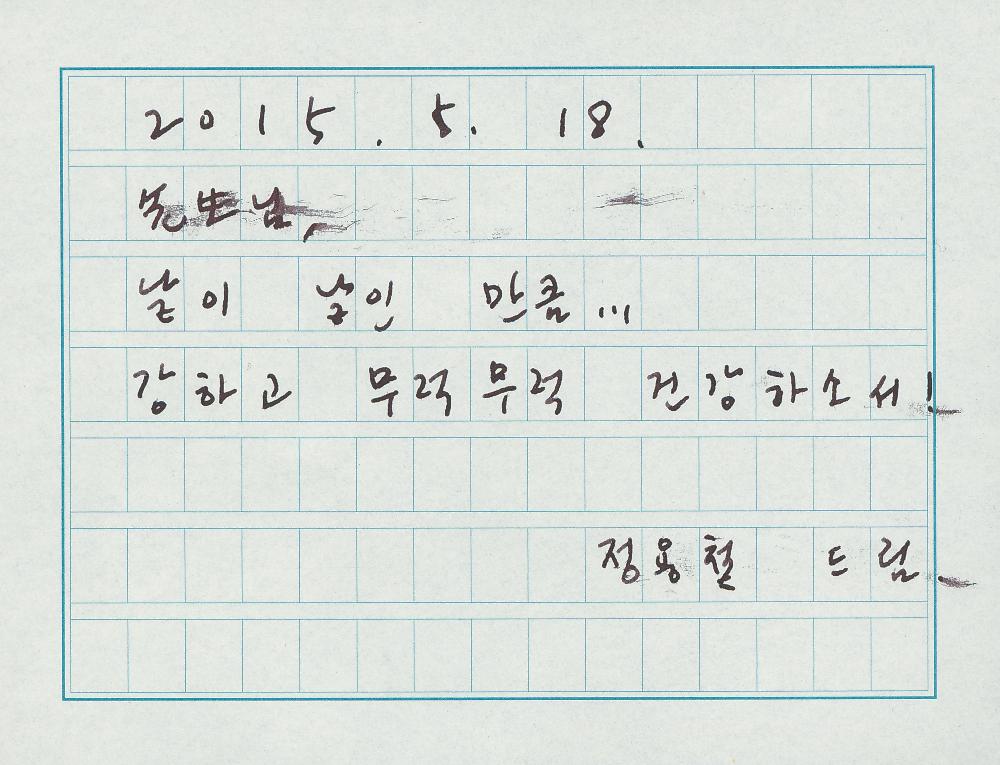 2015. 5. 18.
先生님,
날이 날인 만큼...
강하고 무럭무럭 건강하소서!
정용철 드림.